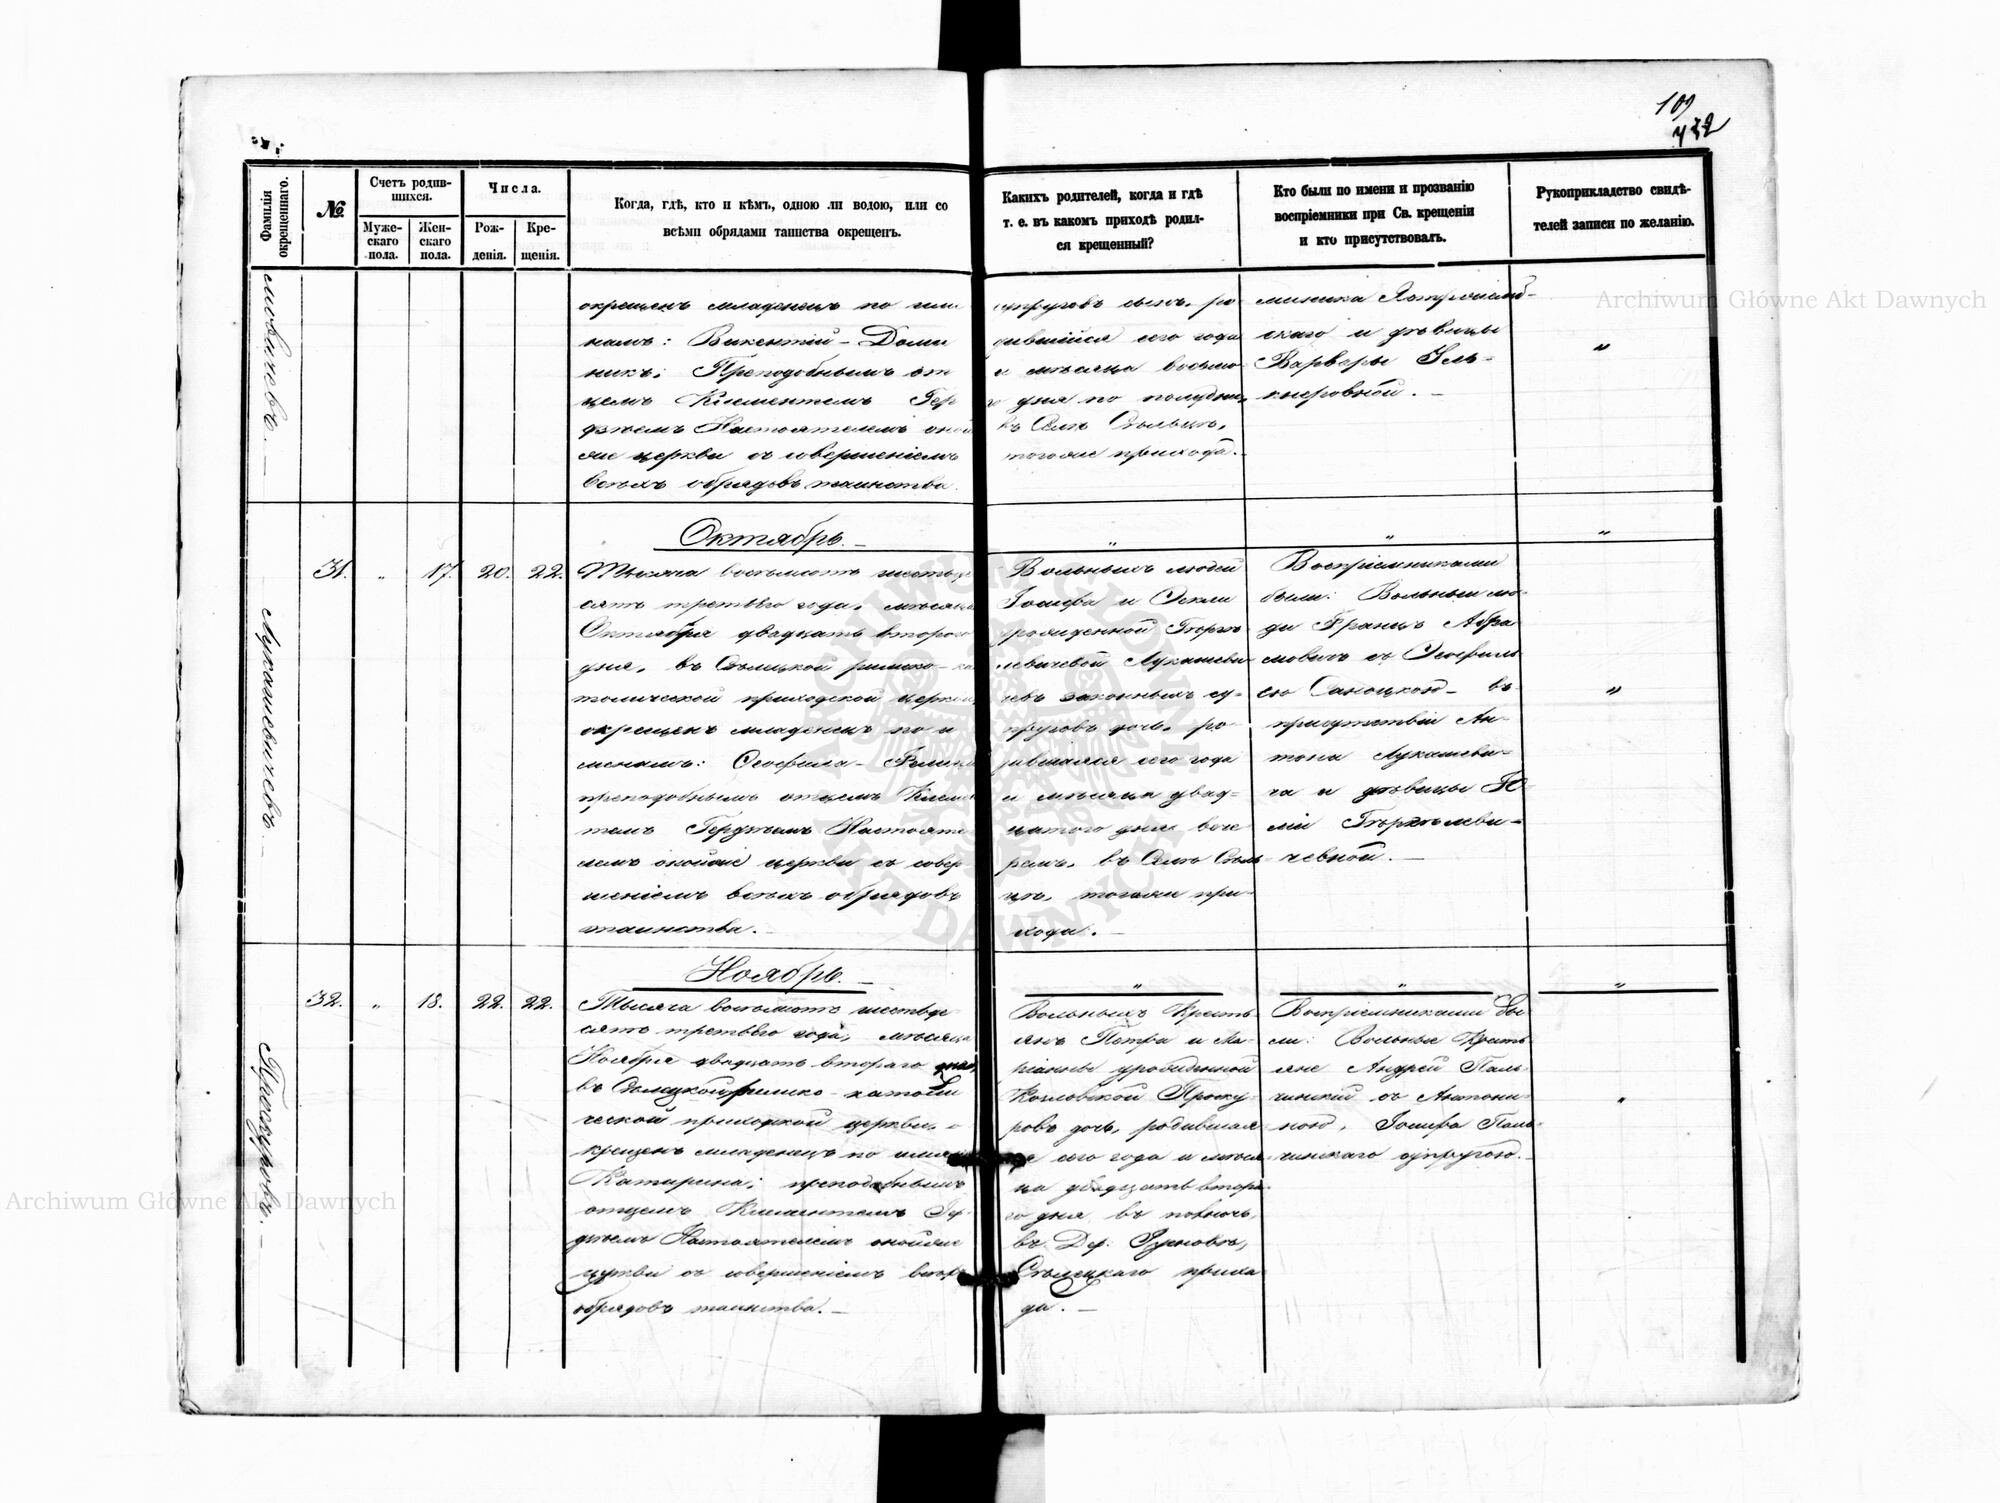 109
432
Фамилія окрещеннаго.
№
Счетъ родившихся.
Мужескаго пола.
Женскаго пола.
Числа.
Рожденія.
Крещенія.
Когда, гдѣ, кто и кѣмъ, одною ли водою, или со
всѣми обрядами таинства окрещенъ.
Какихъ родителей, когда и гдѣ
т. е. въ какомъ приходѣ родил-
ся крещенный?
Кто были по имени и прозванію
воспріемники при Св. крещеніи
и кто присутствовалъ.
Рукоприкладство свидѣ-
телей записи по желанію.
окрещенъ младенецъ по име
намъ: Викентій-Доми
никъ; Преподобнымъ от
цемъ Климентемъ Гер
Настоятелемъ оной
же церкви съ совершеніемъ
всѣхъ обрядовъ таинства.
супруговъ сынъ, ро
дившійся сего года
и мѣсяца восьмо
го дня по полудни,
въ Селѣ
тогоже прихода.
миника
скаго и дѣвицы
Варвары
Октябрь.
Лукашевичевъ.
31.
„
17.
20.
22.
Тысяча восемьсотъ шестьде
сятъ третьяго года, мѣсяца
Октября двадцать второго
дня, въ римско-ка
толической приходской церкви
окрещенъ младенецъ по и
менамъ: Ѳеофила-
преподобнымъ отцемъ Климен
темъ Настояте
лемъ онойже церкви съ совер
шеніемъ всѣхъ обрядовъ
таинства.
Вольныхъ людей
Іосифа и Ѳекли
урожденной
Лукашеви
чевъ законныхъ су-
пруговъ дочь, ро-
дившаяся сего года
и мѣсяца двад-
цатого дня вече
ромъ, въ Селѣ
тогоже при-
хода.
Воспріемниками
были: Вольныи лю-
ди Францъ Абра
мовичъ съ Ѳеофиль-
ею въ
присутствіи Ан-
тона Лукашеви-
ча и дѣвицы Ю-
ліи
чевной.
Ноябрь.
Проскуровъ.
32.
„
18.
22.
22.
Тысяча восемьсотъ шестьде
сятъ третьяго года, мѣсяца
Ноября двадцать втораго дня,
въ римско-католи
ческой приходской церкви, о
крещенъ младенецъ по имени
Катарина; преподобнымъ
отцемъ Климентемъ Гер
Настоятелемъ онойже
церкви съ совершеніемъ всѣхъ
обрядовъ таинства.
Вольныхъ Кресть
янъ Петра и Ма-
ріанны урожденной
Козловской Проску-
ровъ дочь, родившая
ся сего года и мѣся
ца двадцать второ
го дня въ полночь,
въ Дер.
прихо
да.
Воспріемниками бы
ли: Вольные Кресть
яне Андрей Паль-
чинскій съ Антони-
ною, Іосифа Паль-
чинскаго супругою.
Archiwum Główne Akt Dawnych
Archiwum Główne Akt Dawnych